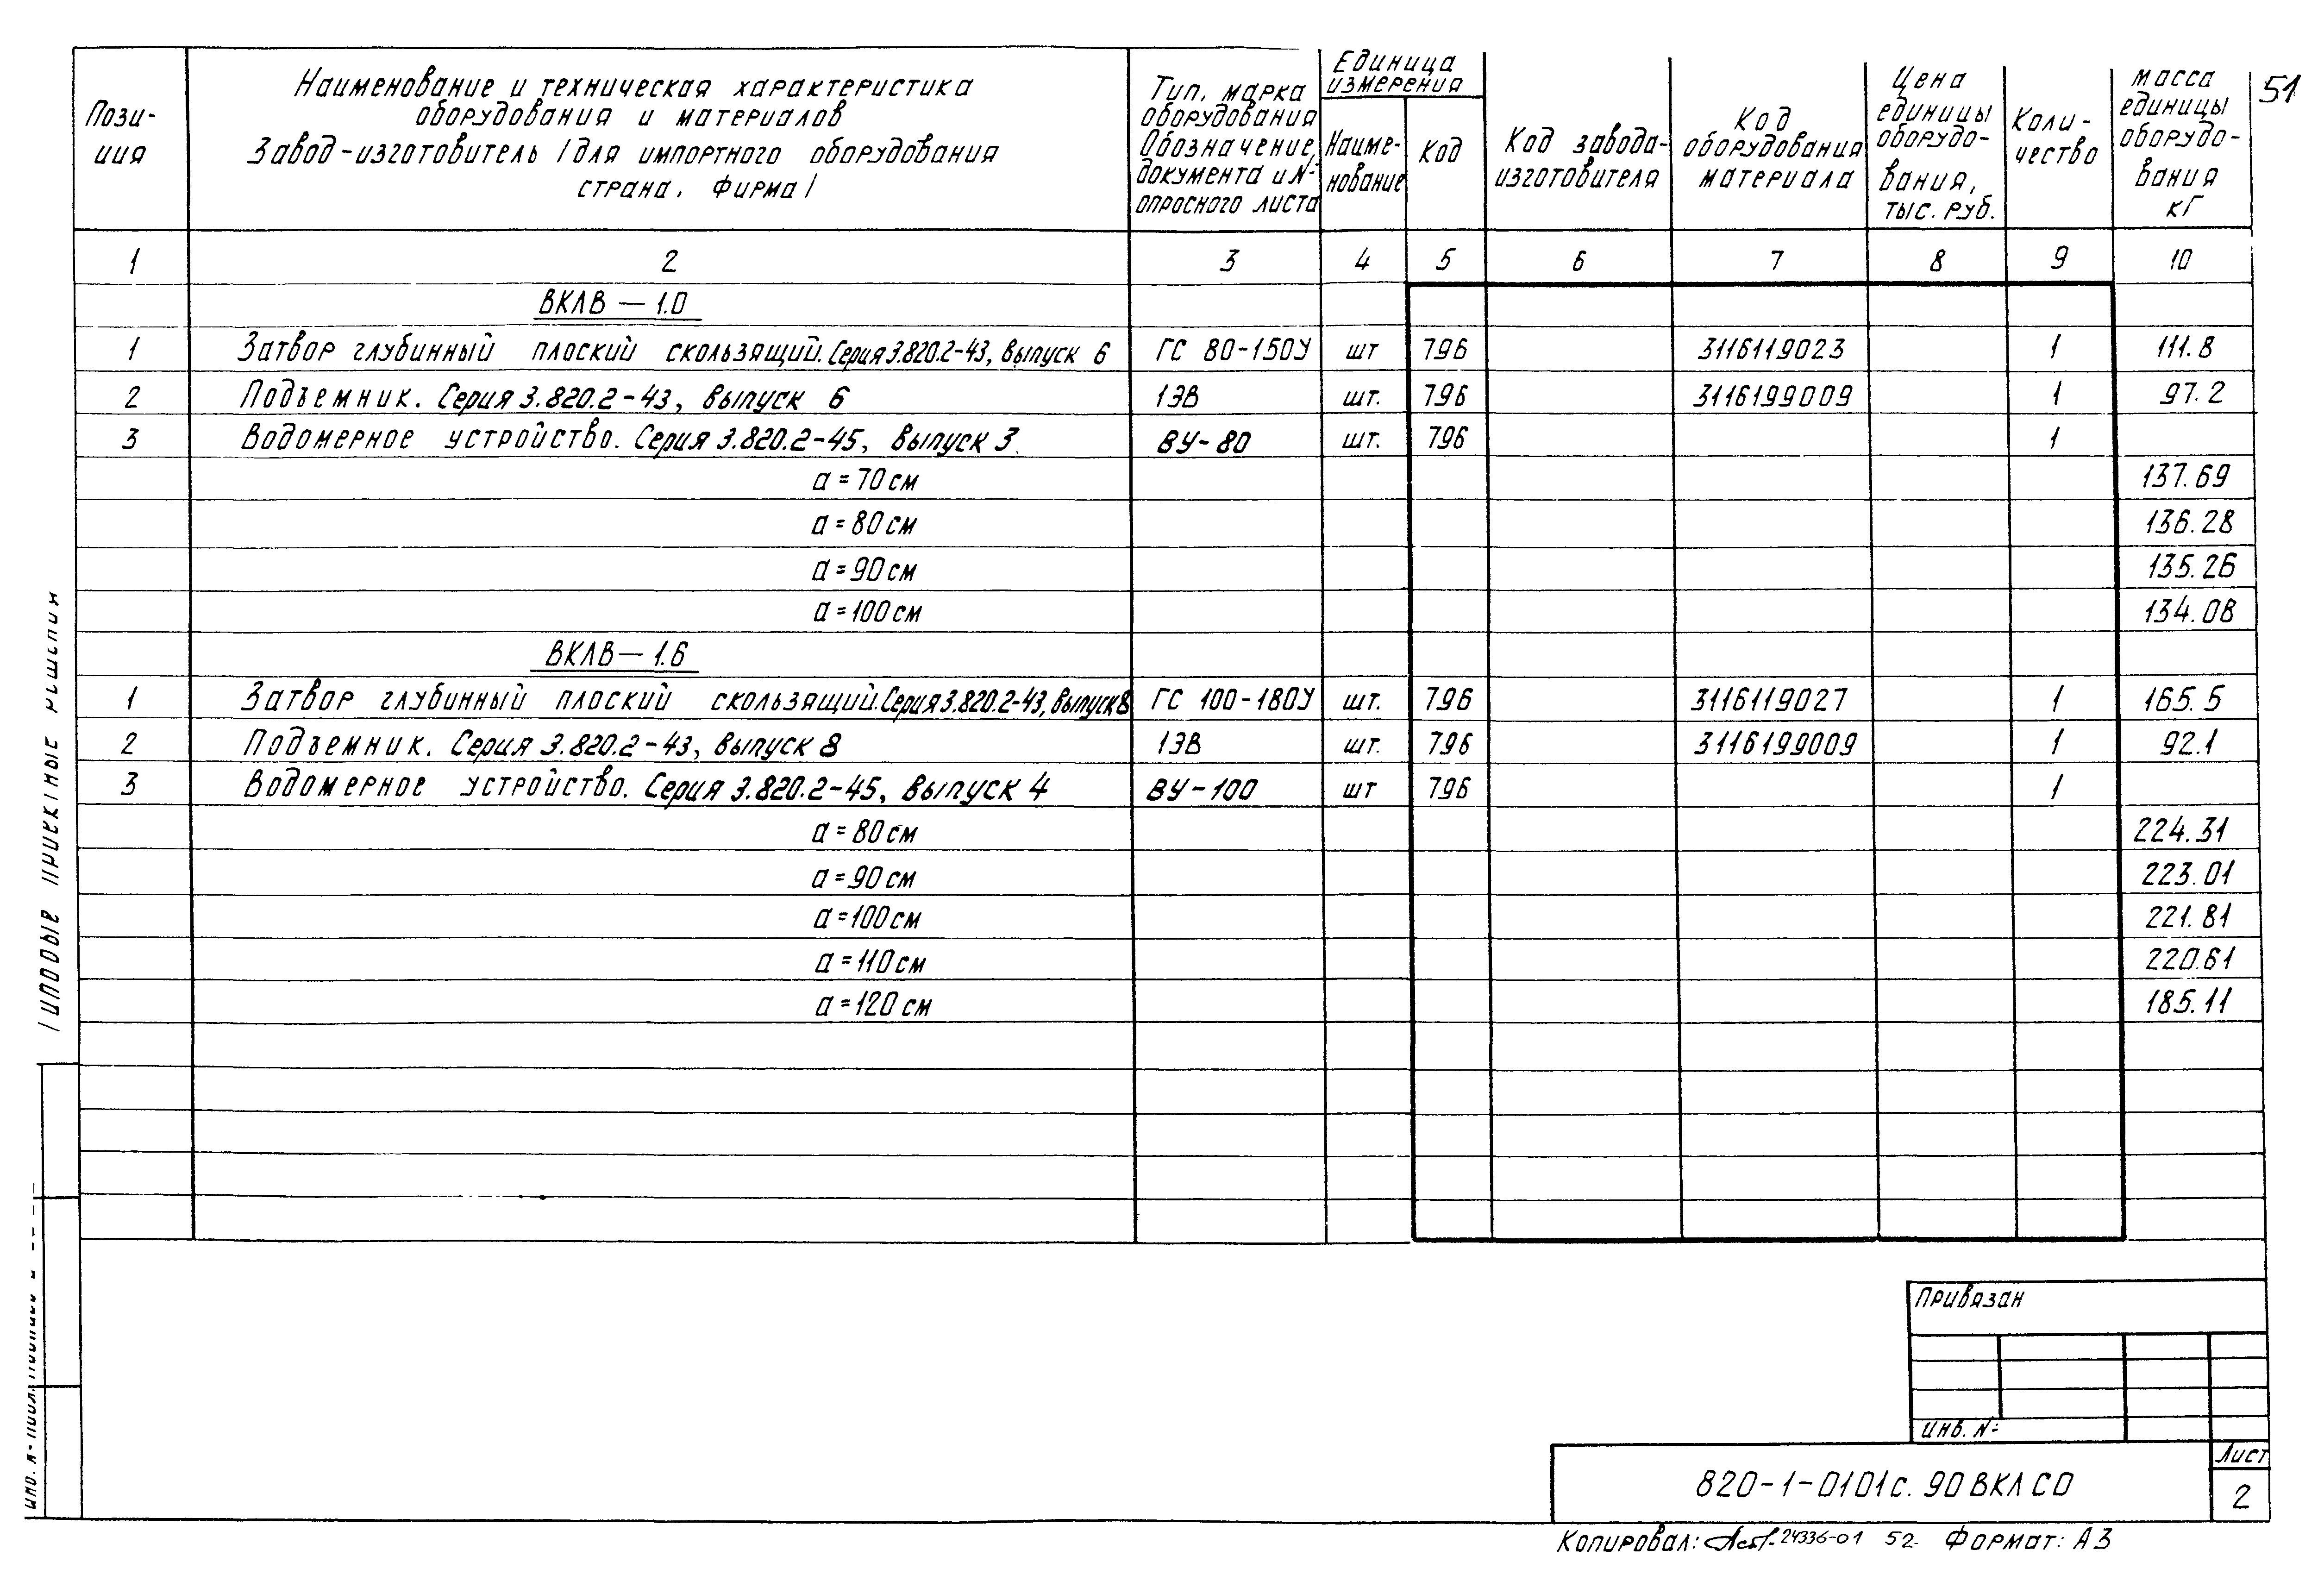 51
Пози-
ция
Наименование и техническая характеристика
оборудования и материалов
Завод-изготовитель /для импортного оборудования
страна, фирма/
Тип, марка
оборудования
Обозначение,
документа и №
опросного листа
Единица
измерения
Наиме-
нование
Код
Код завода-
изготовителя
Код
оборудования
материала
Цена
единицы
оборудо-
вания,
тыс. руб.
Коли-
чество
масса
единицы
оборудо-
вания
кг
1 2 3 4 5 6 7 8 9 10
ВКЛВ — 1.0
1 Затвор глубинный плоский скользящий. Серия 3.820.2-43, выпуск 6 ГС 80-150У шт 796 3116119023 1 111.8
2 Подъемник. Серия 3.820.2-43, выпуск 6 1ЭВ шт. 796 3116199009 1 97.2
3 Водомерное устройство. Серия 3.820.2-45, выпуск 3 ВУ-80 шт. 796 1
а = 70 см 137.69
а = 80 см 136.28
а = 90 см 135.26
а = 100 см 134.08
ВКЛВ — 1.6
1 Затвор глубинный плоский скользящий. Серия 3.820.2-43, выпуск 8 ГС 100-180У шт. 796 3116119027 1 165.5
2 Подъемник. Серия 3.820.2-43, выпуск 8 1ЭВ шт. 796 3116199009 1 92.1
3 Водомерное устройство. Серия 3.820.2-45, выпуск 4 ВУ-100 шт 796 1
а = 80 см 224.31
а = 90 см 223.01
а = 100 см 221.81
а = 110 см 220.61
а = 120 см 185.11
Типовые проектные решения
Привязан
Инв. №
820-1-0101с. 90 ВКЛ СО
Лист
2
Копировал: 24336-01 52 Формат: А3